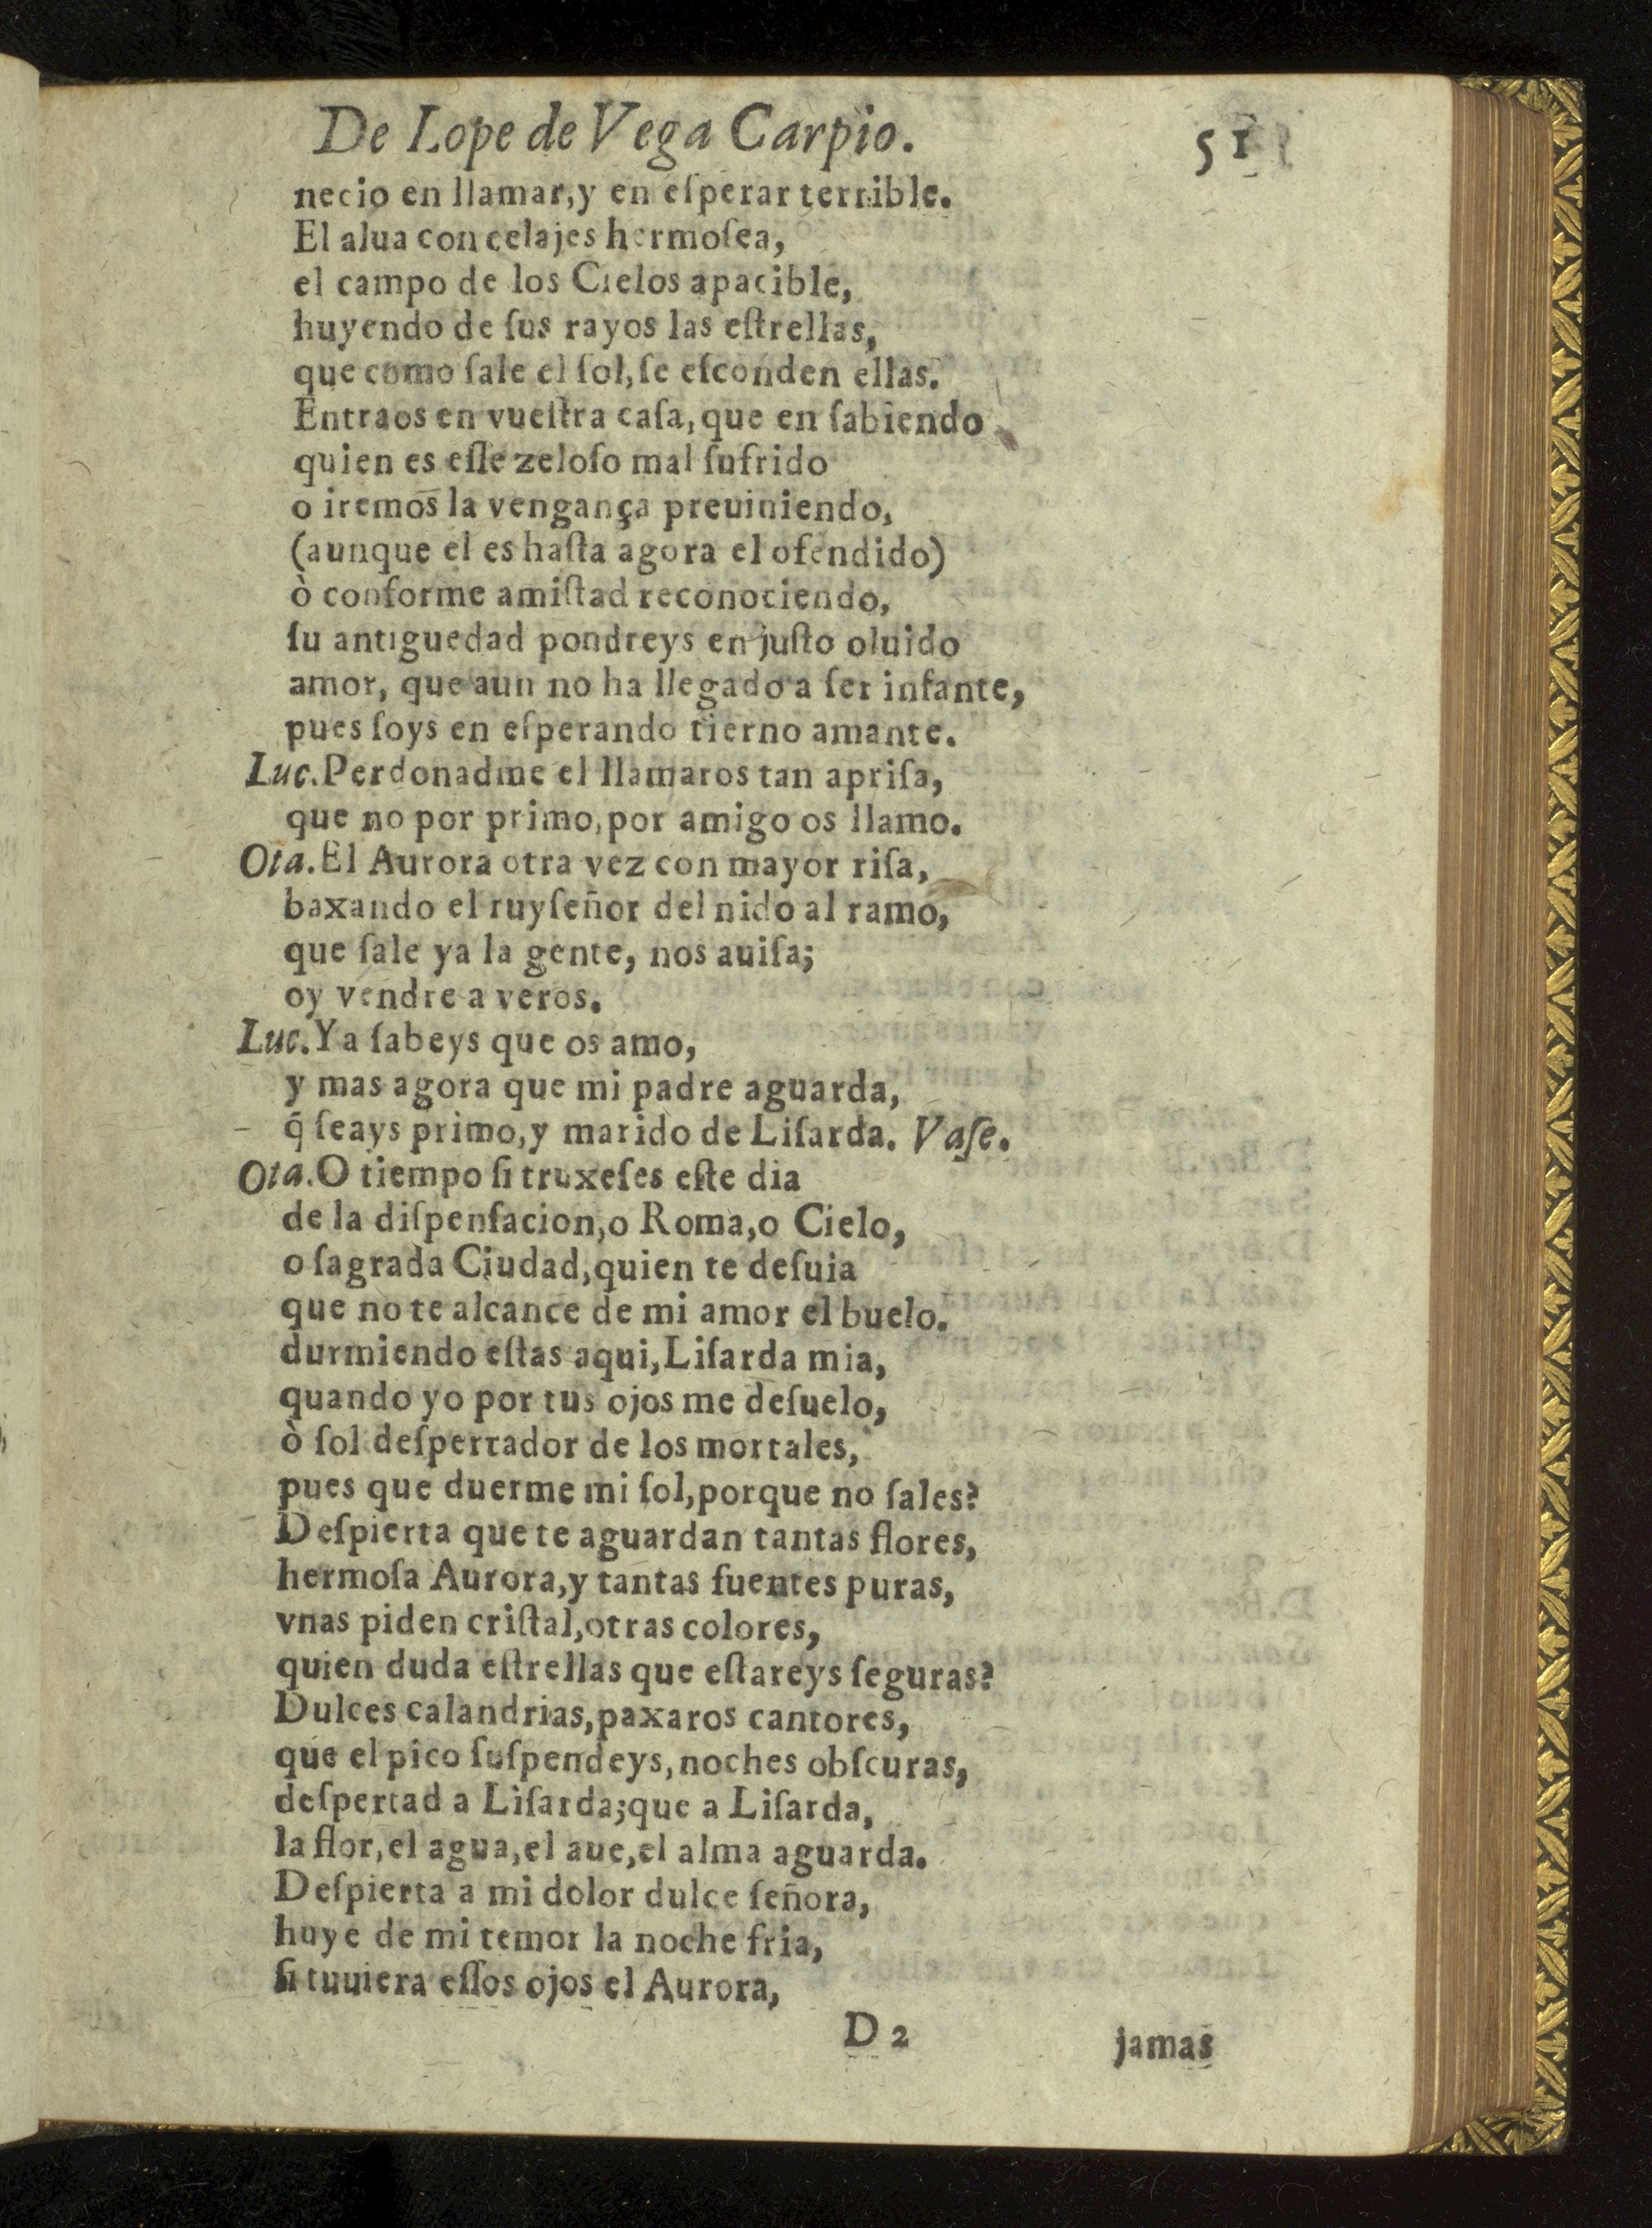 De Lope de Vega Carpio. 51
necio en llamar,y en eſperar terrible.
El alua con celajes hermoſea,
el campo de los Cielos apacible,
huyendo de ſus rayos las eſtrellas,
que como ſale el ſol,ſe eſconden ellas.
Entraos en vueſtra caſa,que en ſabiendo
quien es eſſe zeloſo mal ſufrido
o iremos la vengança preuiniendo,
(aunque el es haſta agora el ofendido)
ò conforme amiſtad reconociendo,
ſu antiguedad pondreys en juſto oluido
amor, que aun no ha llegado a ſer infante,
pues ſoys en eſperando tierno amante.
Luc.Perdonadme el llamaros tan apriſa,
que no por primo,por amigo os llamo.
Ota.El Aurora otra vez con mayor riſa,
baxando el ruyſeñor del nido al ramo,
que ſale ya la gente, nos auiſa;
oy vendre a veros.
Luc.Ya ſabeys que os amo,
y mas agora que mi padre aguarda,
q̃ ſeays primo,y marido de Liſarda. Vaſe.
Ota.O tiempo ſi truxeſes eſte dia
de la diſpenſacion,o Roma,o Cielo,
o ſagrada Ciudad,quien te deſuia
que no te alcance de mi amor el buelo.
durmiendo eſtas aqui,Liſarda mia,
quando yo por tus ojos me deſuelo,
ò ſol deſpertador de los mortales,
pues que duerme mi ſol,porque no ſales?
Deſpierta que te aguardan tantas flores,
hermoſa Aurora,y tantas fuentes puras,
vnas piden criſtal,otras colores,
quien duda eſtrellas que eſtareys ſeguras?
Dulces calandrias,paxaros cantores,
que el pico ſuſpendeys,noches obſcuras,
deſpertad a Liſarda;que a Liſarda,
la flor,el agua,el aue,el alma aguarda.
Deſpierta a mi dolor dulce ſeñora,
huye de mi temor la noche fria,
ſi tuuiera eſſos ojos el Aurora,
D 2 jamas